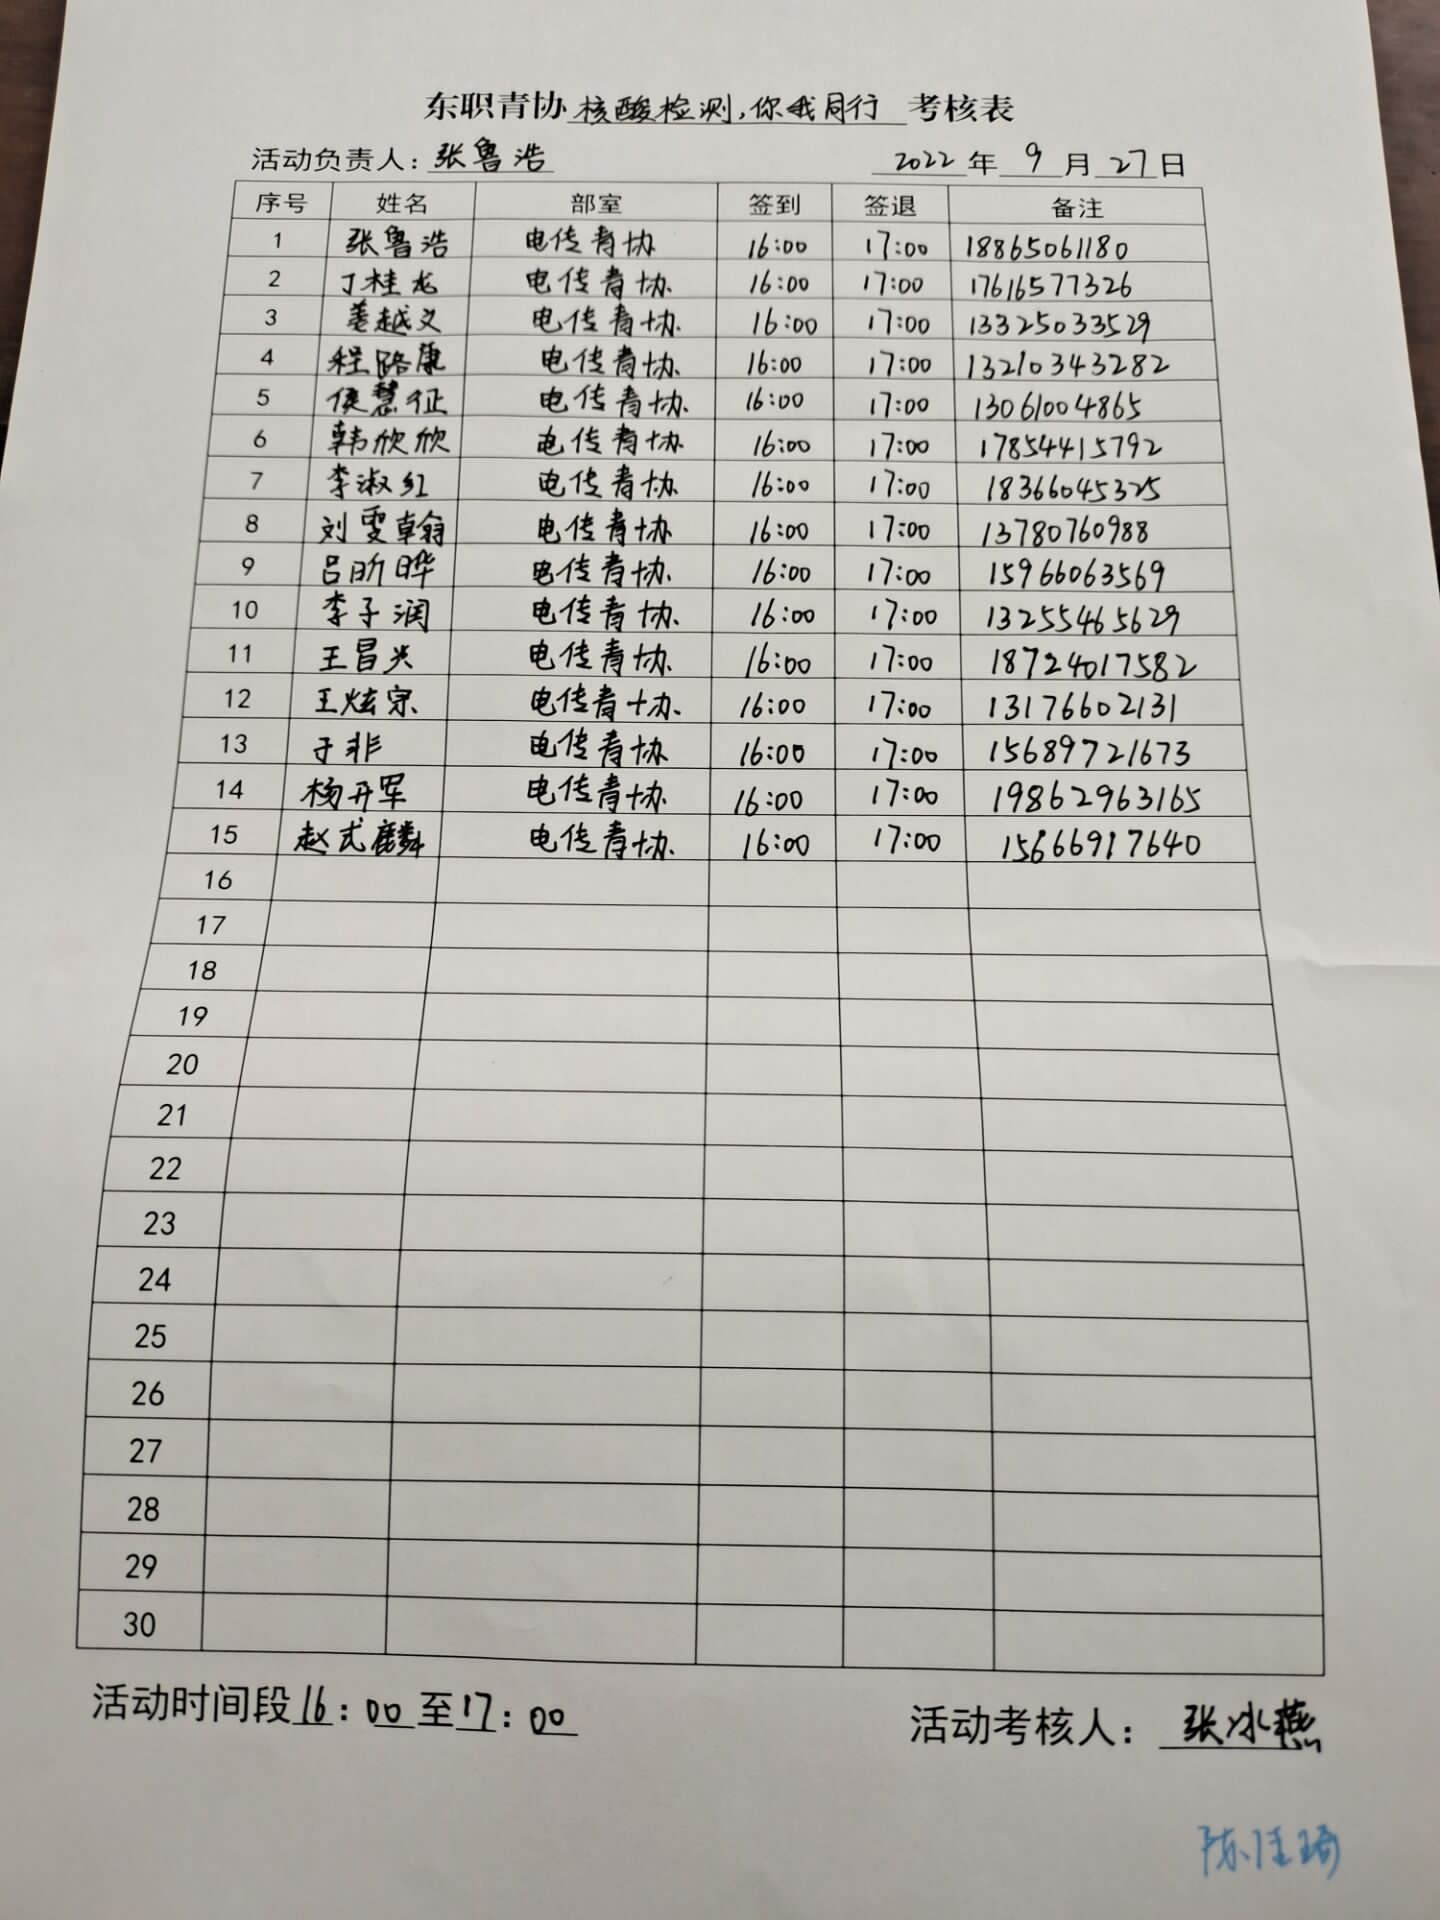 东职青协核酸检测,你我同行 考核表
活动负责人: 张鲁浩 2022 年 9 月 27 日
序号 姓名 部室 签到 签退 备注
1 张鲁浩 电传青协 16:00 17:00 18865061180
2 丁桂龙 电传青协 16:00 17:00 17616577326
3 姜越义 电传青协 16:00 17:00 13325033529
4 程路康 电传青协 16:00 17:00 13210343282
5 侯慧征 电传青协 16:00 17:00 13061004865
6 韩欣欣 电传青协 16:00 17:00 17854415792
7 李淑红 电传青协 16:00 17:00 18366045325
8 刘雯翰 电传青协 16:00 17:00 13780760988
9 吕昕晔 电传青协 16:00 17:00 15966063569
10 李子润 电传青协 16:00 17:00 13255465629
11 王昌兴 电传青协 16:00 17:00 18724017582
12 王炫宗 电传青协 16:00 17:00 13176602131
13 于非 电传青协 16:00 17:00 15689721673
14 杨开军 电传青协 16:00 17:00 19862963165
15 赵式麟 电传青协 16:00 17:00 15666917640
16
17
18
19
20
21
22
23
24
25
26
27
28
29
30
活动时间段16:00至17:00 活动考核人: 张冰燕
陈佳琦